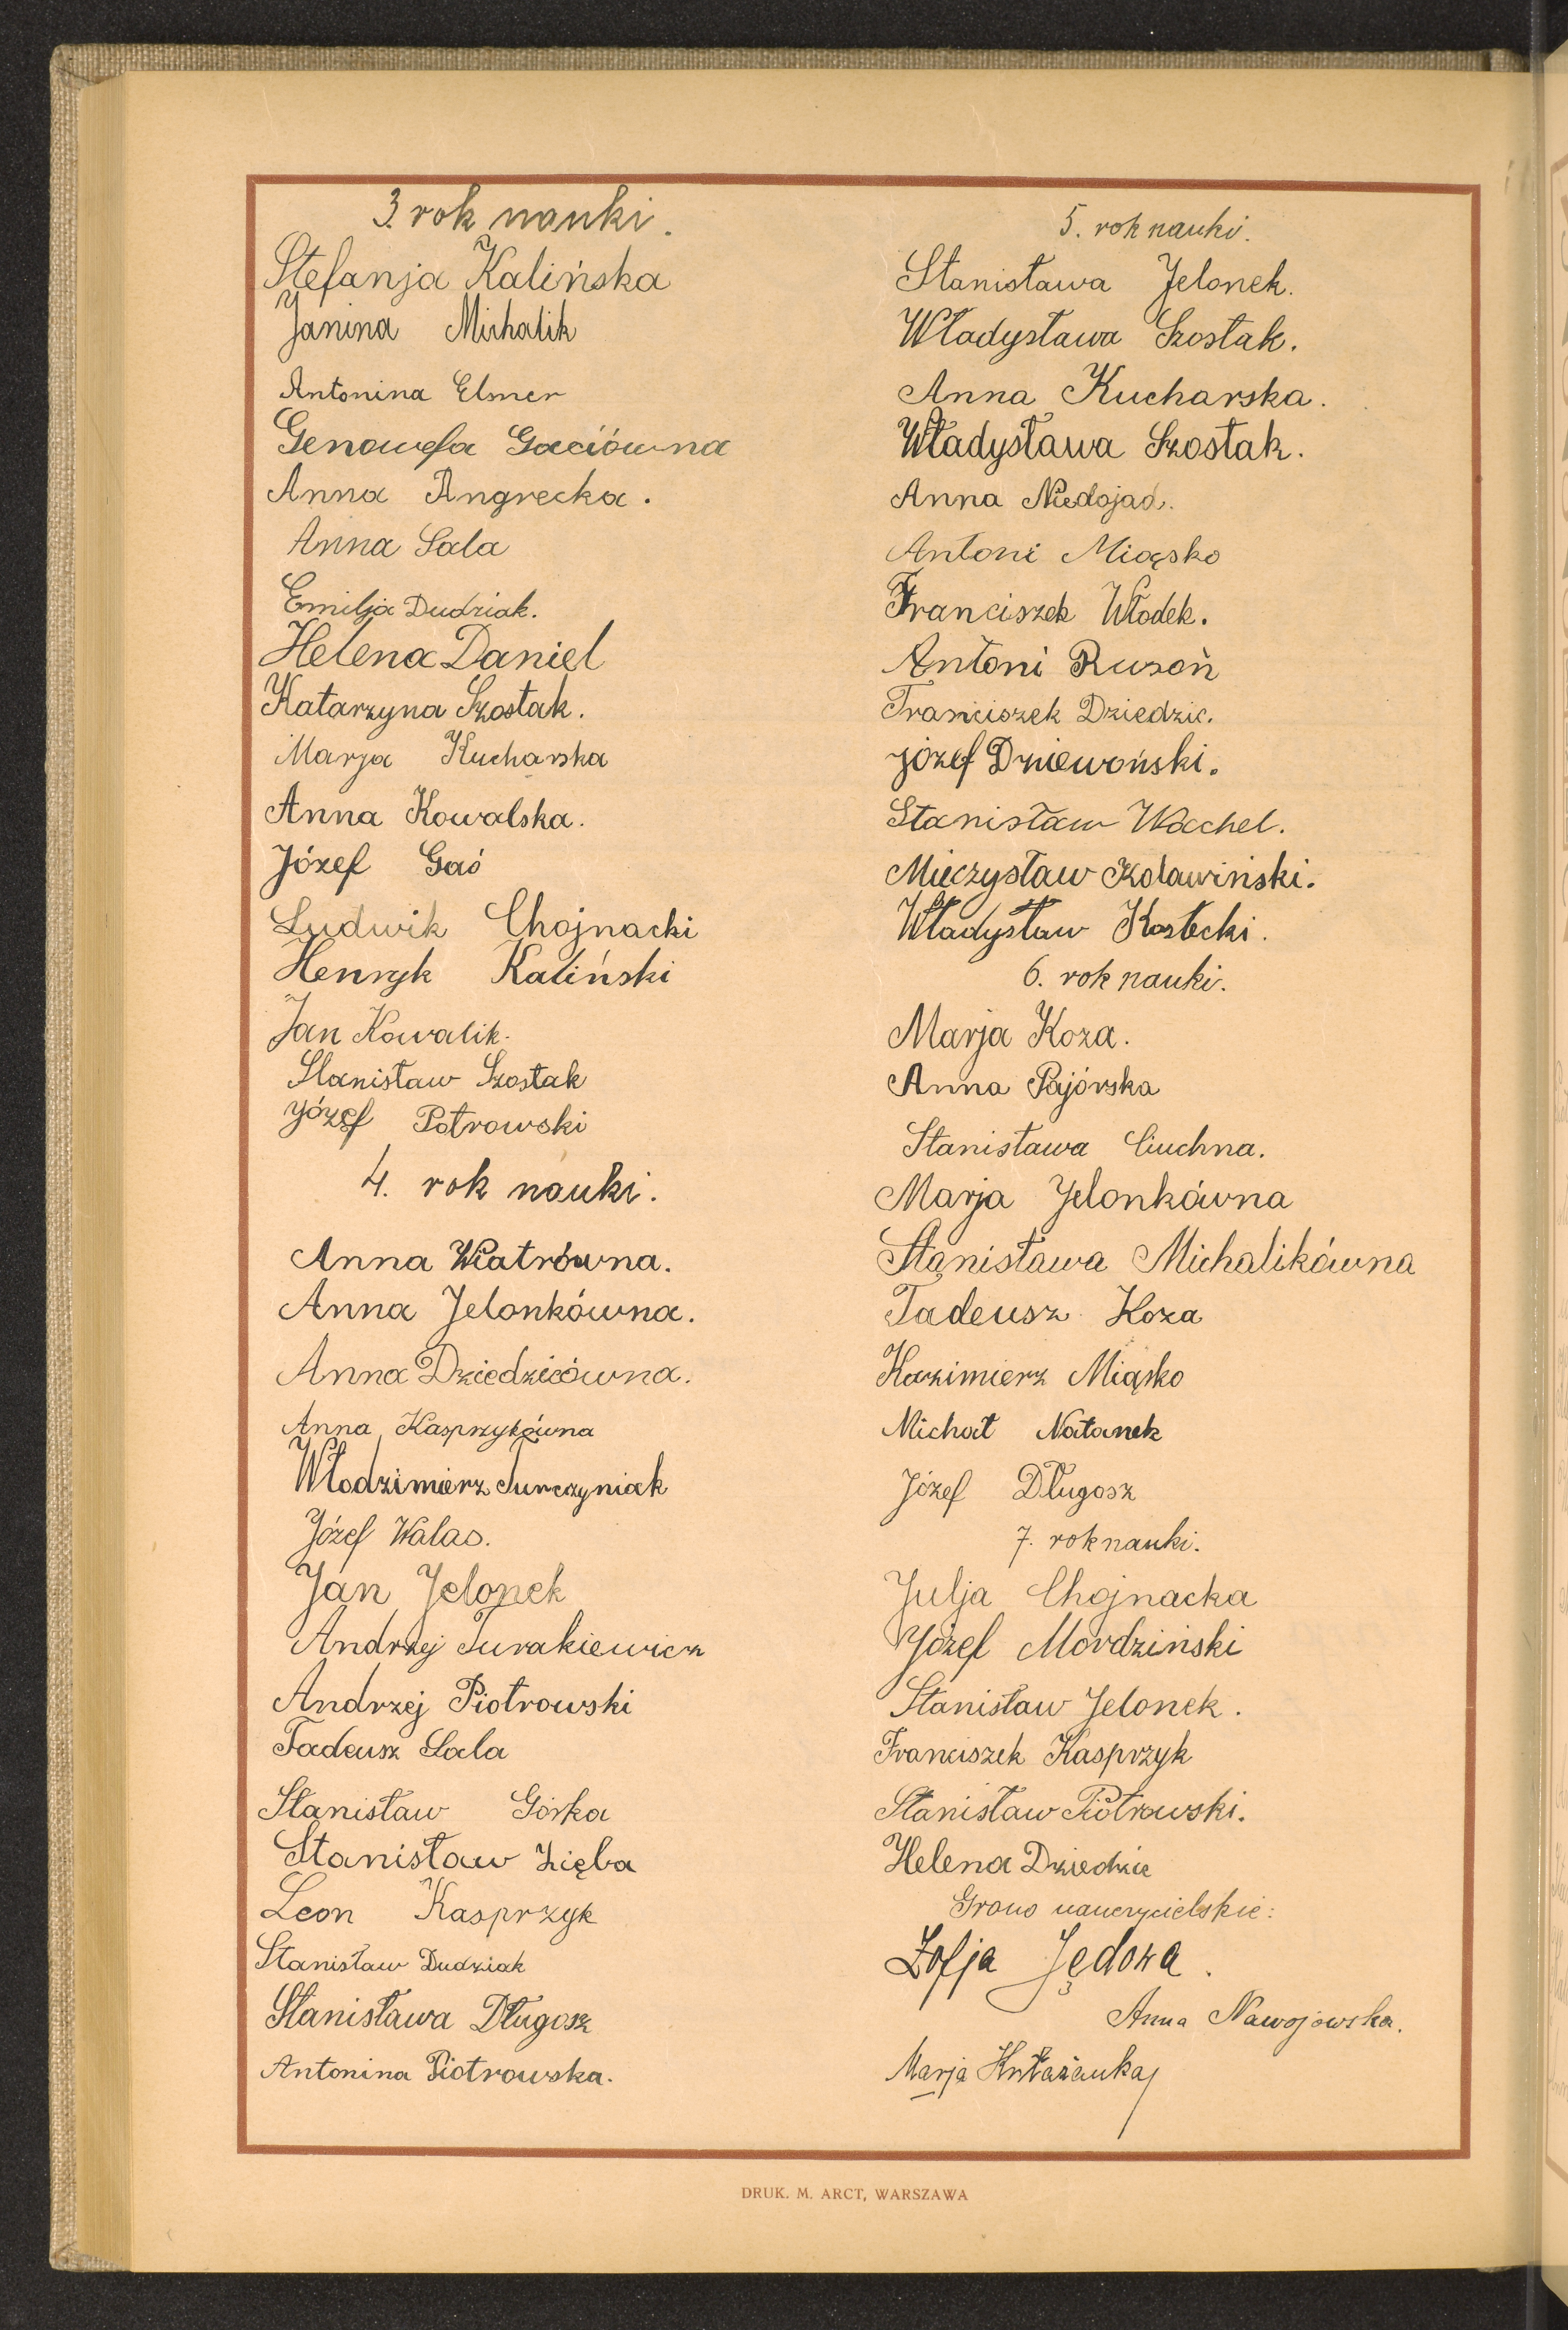 3. rok nauki.
Stefanja Kalińska
Janina Michalik
Antonina Elmer
Genowefa Gaciówna
Anna Angrecka.
Anna Sala
Emilja Dudziak.
Helena Daniel
Katarzyna Szostak.
Marja Kucharska
Anna Kowalska.
Józef Gaś
Ludwik Chojnacki
Henryk Kaliński
Jan Kowalik.
Stanisław Szostak
Józef Potrowski
4. rok nauki.
Anna Wiatrówna.
Anna Jelonkówna.
Anna Dziedzicówna.
Anna Kasprzykówna
Włodzimierz Turczyniak
Józef Walas.
Jan Jelonek
Andrzej Turakiewicz
Andrzej Piotrowski
Tadeusz Sala
Stanisław Górka
Stanisław Zięba
Leon Kasprzyk
Stanisław Dudziak
Stanisława Długosz
Antonina Piotrowska.
5. rok nauki.
Stanisława Jelonek.
Władysława Szostak.
Anna Kucharska.
Władysława Szostak.
Anna Niedojad.
Antoni Miąsko
Franciszek Włodek.
Antoni Rusoń
Franciszek Dziedzic.
Józef Dziewoński.
Stanisław Wachel.
Mieczysław Kolawiński.
Władysław Kostecki.
6. rok nauki.
Marja Koza.
Anna Pajórska
Stanisława Ciuchna.
Marja Jelonkówna
Stanisława Michalikówna
Tadeusz Koza
Kazimierz Miąsko
Michał Natanek
Józef Długosz
7. rok nauki.
Julja Chojnacka
Józef Mordziński
Stanisław Jelonek.
Franciszek Kasprzyk
Stanisław Piotrowski.
Helena Dziedzic
Grono nauczycielskie:
Zofja Jędoza.
Anna Nawojowska.
Marja
DRUK. M. ARCT, WARSZAWA